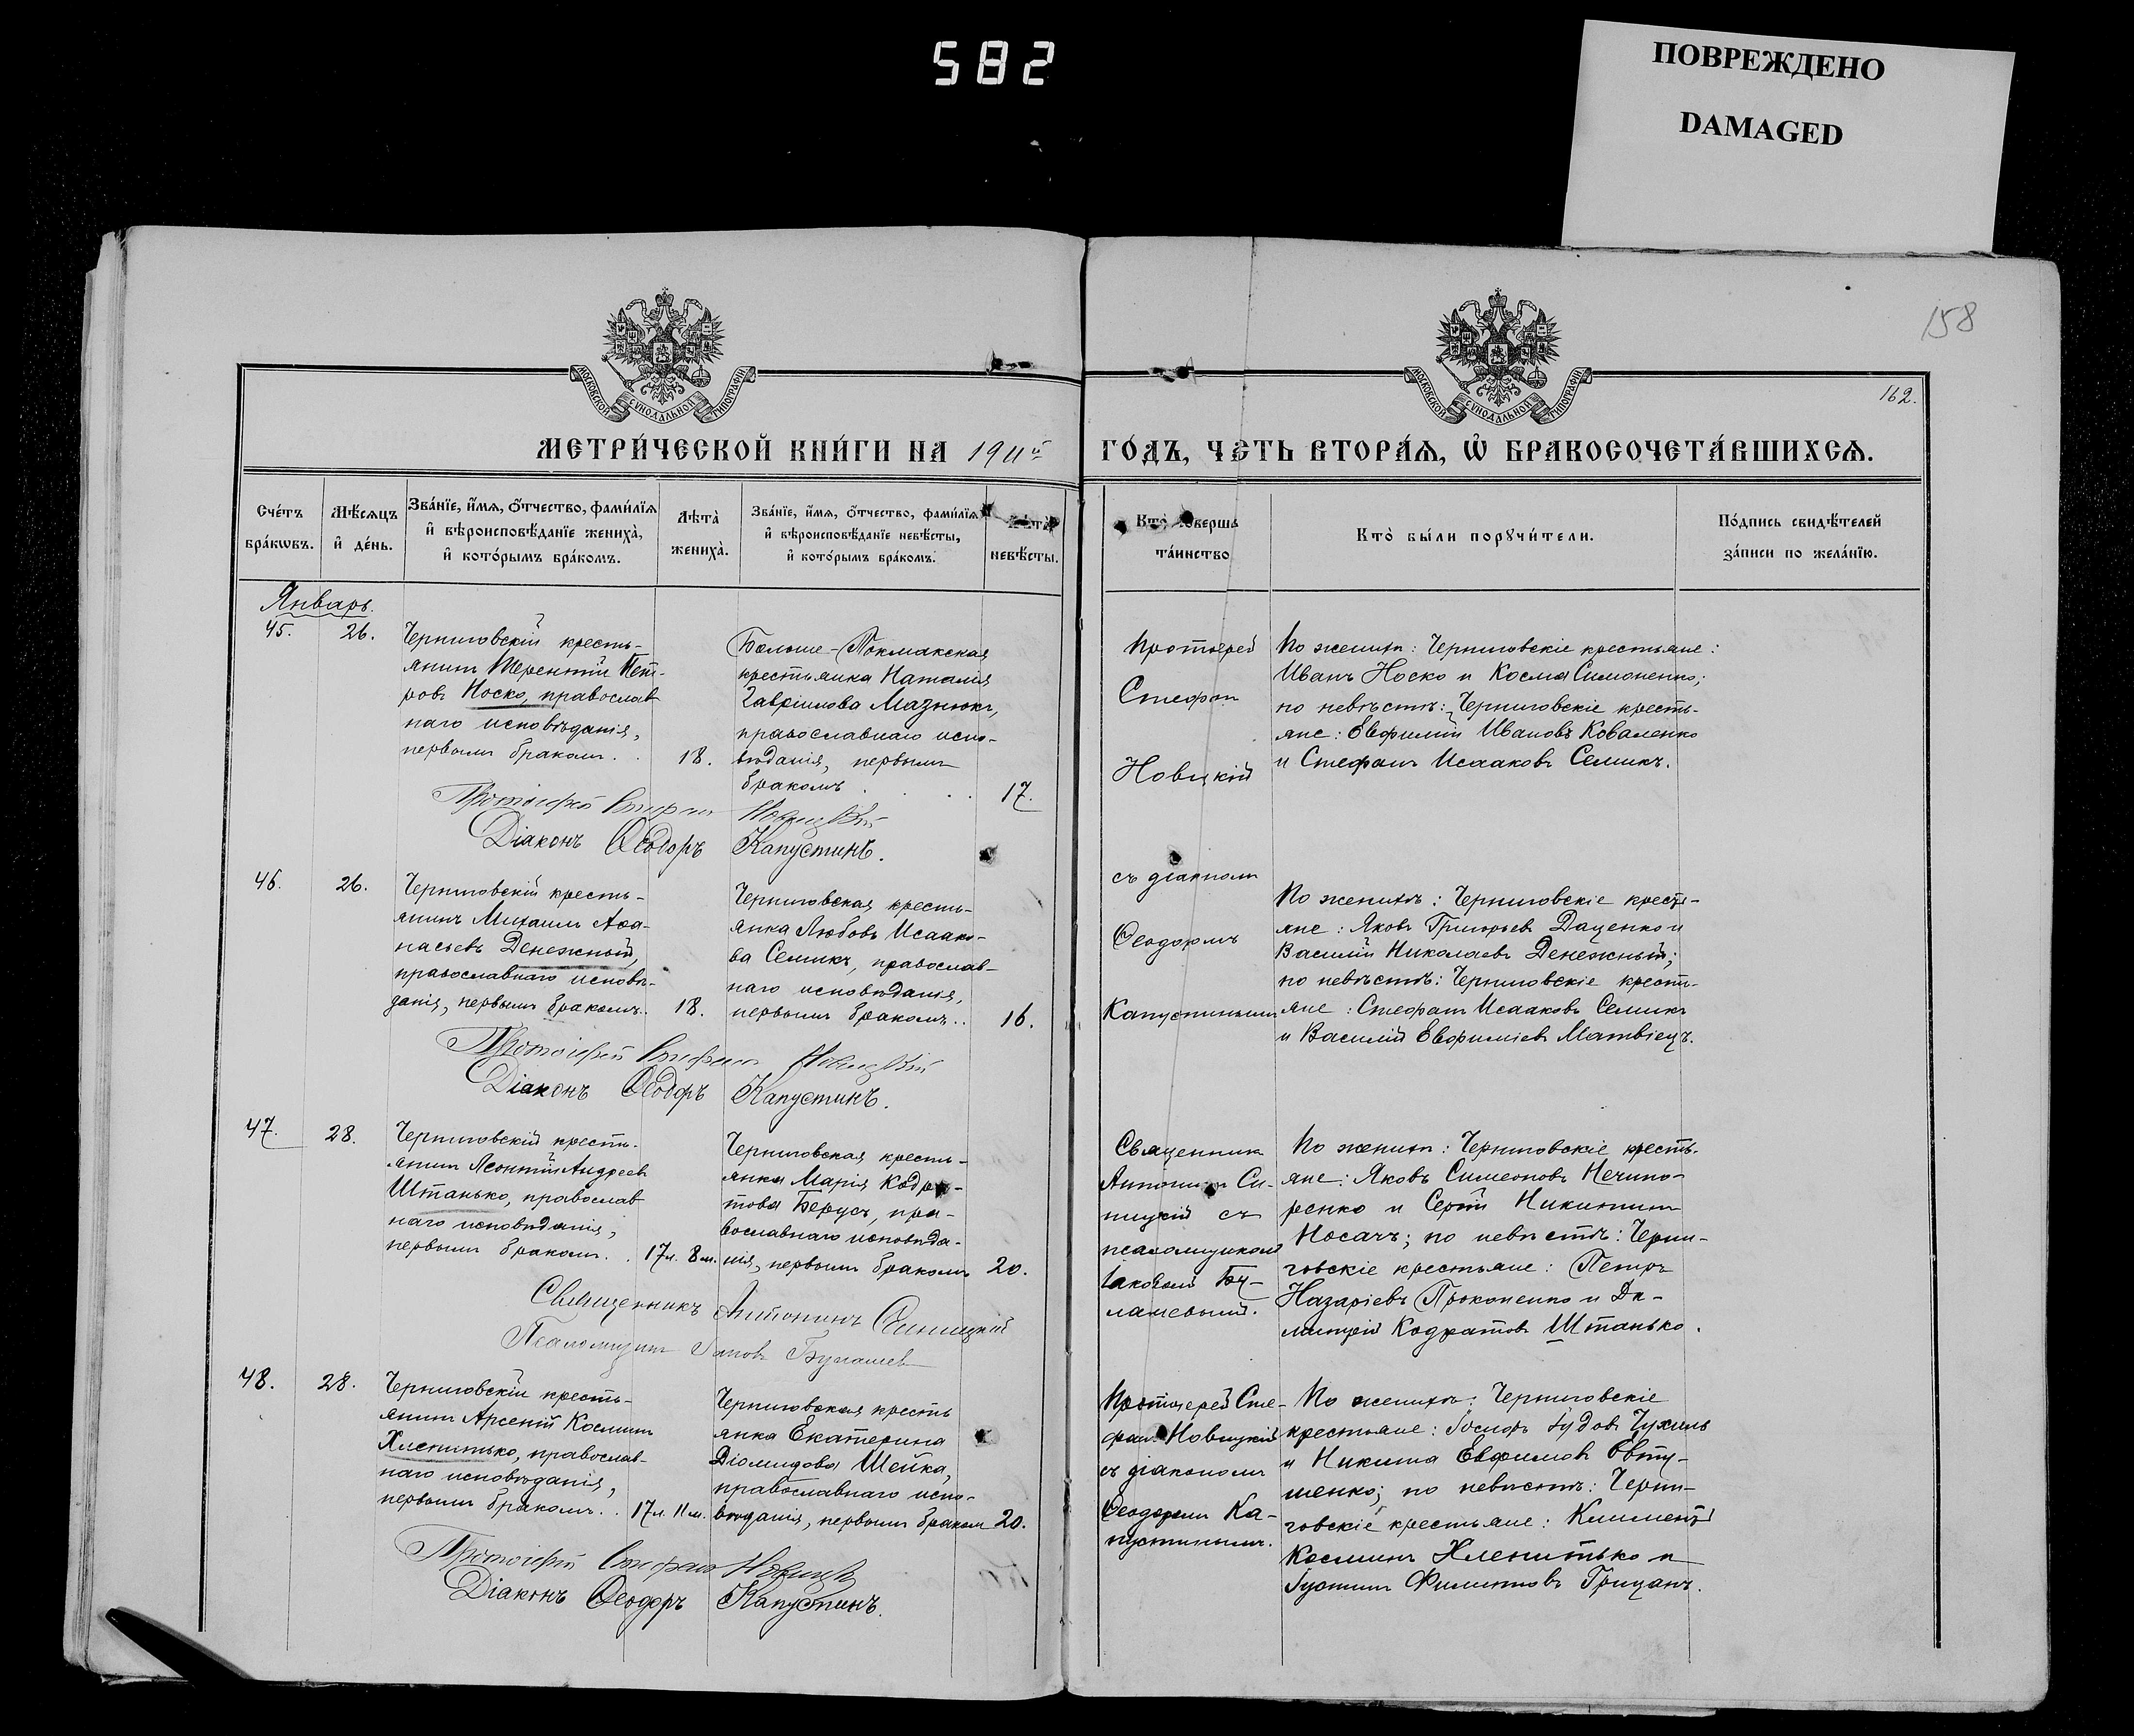 582
ПОВРЕЖДЕНО
DAMAGED
158
162.
МОСКОВСКОЙ СѴНОДАЛЬНОЙ ТИПОГРАФІИ
МОСКОВСКОЙ СѴНОДАЛЬНОЙ ТИПОГРАФІИ
МЕТРИ́ЧЕСКОЙ КНИ́ГИ НА 1911й ГО́ДЪ, ЧАСТЬ ВТОРА́Ѧ, Ѡ҆ БРАКОСОЧЕТА́ВШИХСѦ.
Сче́тъ бра́кѡвъ.
Мѣ́сѧцъ и҆ де́нь.
Зва́нїе, и҆́мѧ, ѻ҆́тчество, фами́лїѧ
и҆ вѣроисповѣ́данїе жениха̀,
и҆ кото́рымъ бра́комъ.
Лѣта̀ жениха̀.
Зва́нїе, и҆́мѧ, ѻ҆́тчество, фами́лїѧ
и҆ вѣроисповѣ́данїе невѣ́сты,
и҆ кото́рымъ бра́комъ.
невѣ́сты.
Кто̀ соверша
та́инство
Кто̀ бы́ли порꙋчи́тели.
По́дпись свидѣ́телей
за́писи по жела́нїю.
Январь.
45.
26.
Черниговскій кресть-
янинъ Терентій Пет-
ровъ Носко, православ
наго исповѣданія,
первымъ бракомъ.
18.
Больше-Токмакская
крестьянка Наталія
Гавріилова Мазнюкъ,
православнаго испо-
вѣданія, первымъ
бракомъ
17.
Протоіерей
Стефан
Новицкій
По женихѣ: Черниговскіе крестьяне:
Иванъ Носко и Косма Симоненко;
по невѣстѣ: Черниговскіе кресть-
яне: Евфимій Ивановъ Коваленко
и Стефанъ Исааковъ Семикъ.
Протоіерей Стефанъ Новицкій
Діаконъ Ѳеодоръ Капустинъ.
46.
26.
Черниговскій кресть-
янинъ Михаилъ Аѳа-
насьевъ Денежный,
православнаго исповѣ-
данія, первымъ бракомъ.
18.
Черниговская кресть-
янка Любовь Исаако-
ва Семикъ, православ-
наго исповѣданія,
первымъ бракомъ..
16.
съ діакономъ
Ѳеодоромъ
Капустинымъ
По женихѣ: Черниговскіе кресть-
яне: Яковъ Григорьевъ Даценко и
Василій Николаевъ Денежный;
по невѣстѣ: Черниговскіе кресть-
яне: Стефанъ Исааковъ Семикъ
и Василій Евфиміевъ Матвіецъ.
Протоіерей Стефанъ Новицкій
Діаконъ Ѳеодоръ Капустинъ.
47.
28.
Черниговскій кресть-
янинъ Леонтій Андреевъ
Штанько, православ
наго исповѣданія,
первымъ бракомъ.
17л. 8м.
Черниговская кресть-
янка Марія Кодра-
това Берусъ, пра-
вославнаго исповѣда-
нія, первымъ бракомъ
20.
Священникъ
Антонинъ Си-
ницкій съ
псаломщикомъ
Іаковомъ Бу-
лашевымъ.
По женихѣ: Черниговскіе кресть-
яне: Яковъ Симеоновъ Нечипо-
ренко и Сергій Никитинъ
Носачъ; по невѣстѣ: Черни-
говскіе крестьяне: Петръ
Назаріевъ Прокопенко и Ди-
митрій Кодратовъ Штанько.
Священникъ Антонинъ Синицкій
Псаломщикъ Іаковъ Булашевъ
48.
28.
Черниговскій кресть-
янинъ Арсеній Косминъ
Хленитько, православ-
наго исповѣданія,
первымъ бракомъ..
17л. 11м.
Черниговская кресть
янка Екатерина
Діомидова Шейка,
православнаго испо-
вѣданія, первымъ бракомъ
20.
Протоіерей Сте-
фанъ Новицкій
съ діакономъ
Ѳеодоромъ Ка-
пустинымъ.
По женихѣ: Черниговскіе
крестьяне: Іосифъ Іудовъ Чухиль
и Никита Евфимовъ Овту-
шенко; по невѣстѣ: Черни-
говскіе крестьяне: Климентъ
Косминъ Хленитько и
Іустинъ Филипповъ Грицанъ.
Протоіерей Стефанъ Новицкій
Діаконъ Ѳеодоръ Капустинъ.